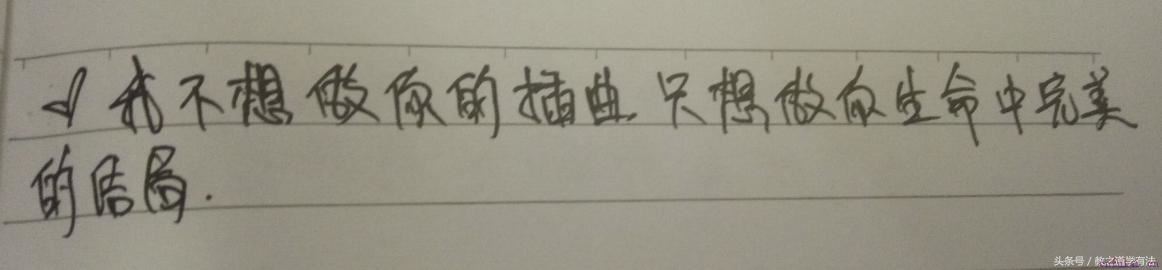 我不想做你的插曲.只想做你生命中完美
的结局.
头条号/教之道学有法